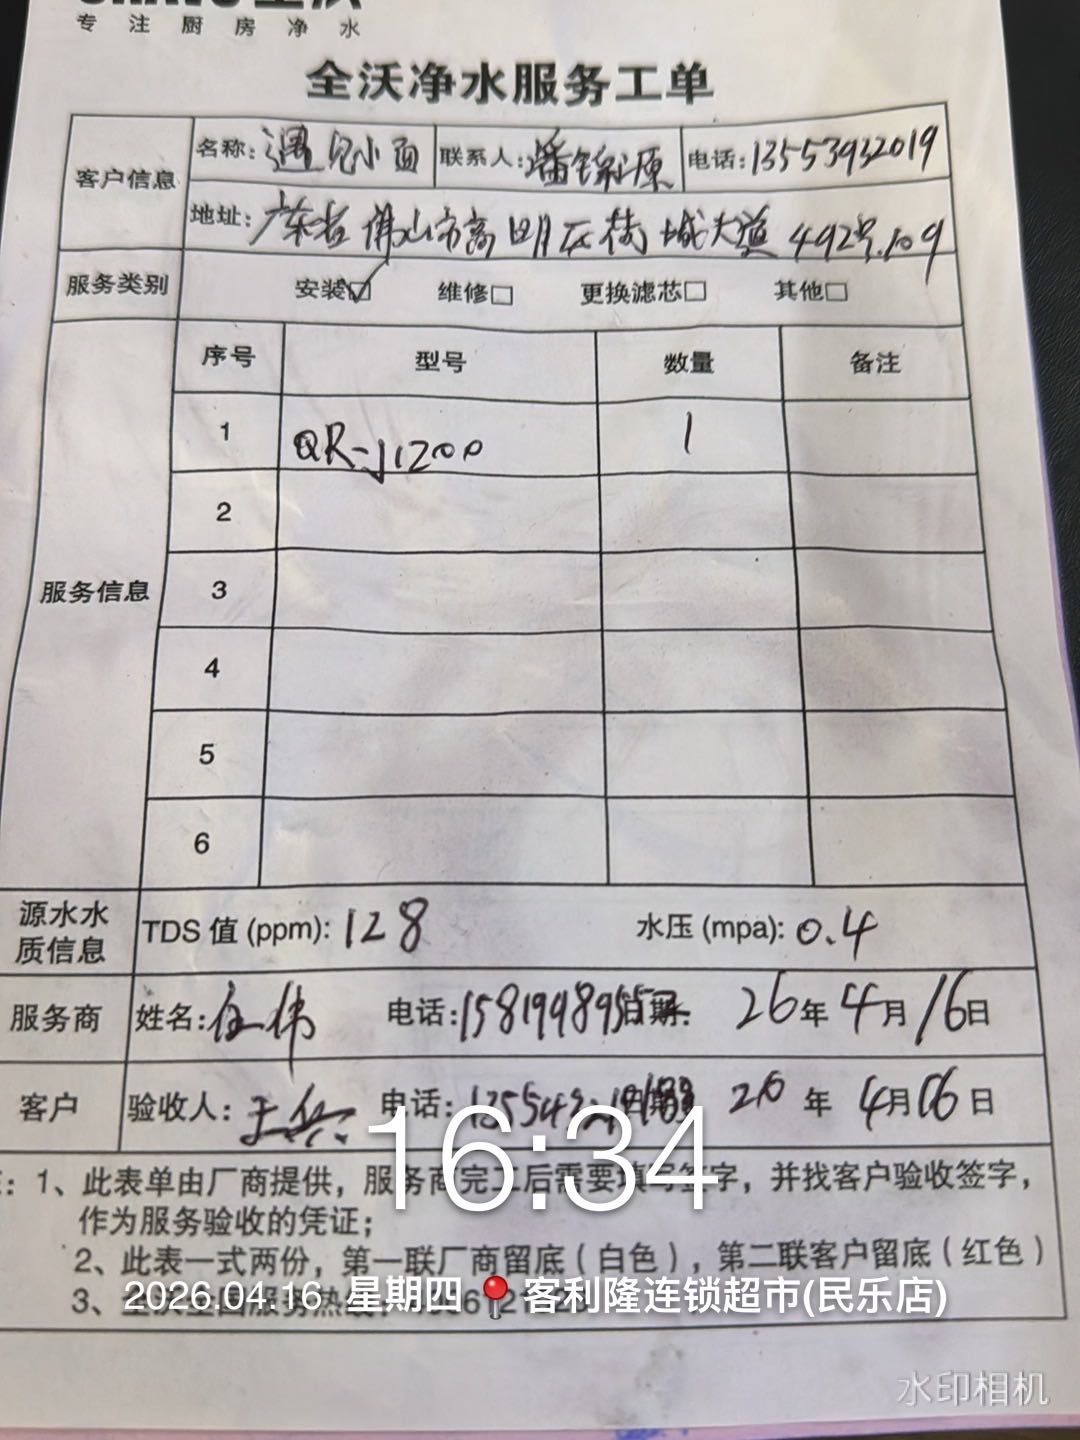 专注厨房净水
全沃净水服务工单
客户信息
名称: 遇见小面 联系人: 潘锦源 电话: 13553932019
地址: 广东省佛山市高明区荷城大道492号.109
服务类别 安装☑ 维修□ 更换滤芯□ 其他□
服务信息
序号 型号 数量 备注
1 QR-J1200 1
2
3
4
5
6
源水水质信息 TDS值(ppm): 128 水压(mpa): 0.4
服务商 姓名: 任伟 电话: 1581998955 日期: 26年4月16日
客户 验收人: 电话: 日期: 26年4月16日
16:34
1、此表单由厂商提供，服务商完工后需要填写签字，并找客户验收签字，
作为服务验收的凭证；
2、此表一式两份，第一联厂商留底（白色），第二联客户留底（红色）
3、全沃全国服务热线:
2026.04.16 星期四 客利隆连锁超市(民乐店)
水印相机